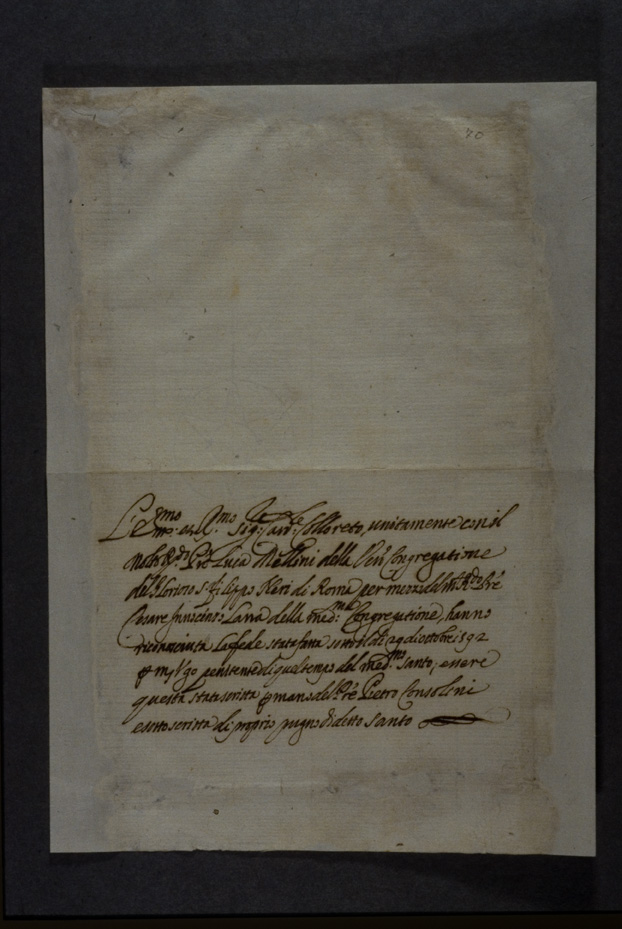 70
L'Em̃o et R.mo Sig: Card.le Colloreto, unitamente con il
molto R.do P're Luca Mellini della Ven: Congregatione
del Glorioso S. Filippo Neri di Roma per mezzo del m. R.do P're
Cesare Lavra della med.ma Congregatione, hanno
riconosciuta la fede stata fatta sotto li di 29 d'ottobre 1592
Ugo penitente di quel tempo del med.mo Santo, essere
questa stata scritta mano del P're Pietro Consolini
e sottoscritta di proprio pugno di detto Santo